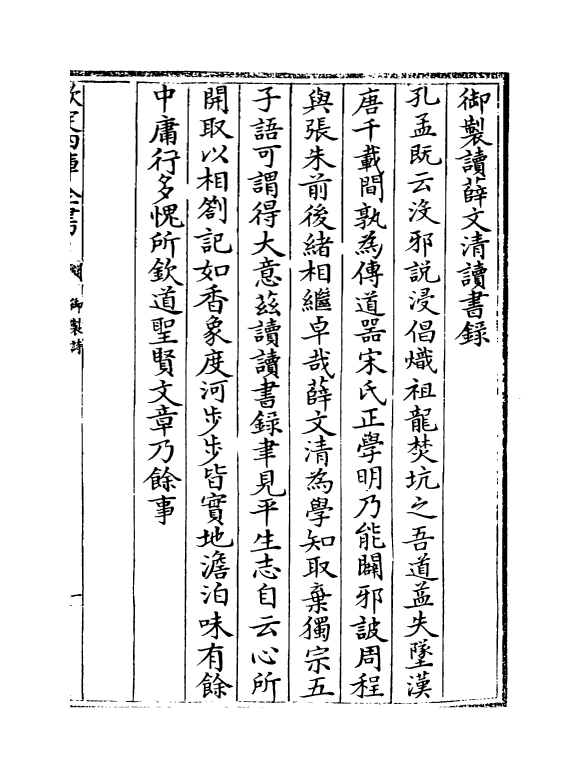 御製讀薛文清讀書錄
孔孟既云沒邪說浸倡熾祖龍焚坑之吾道益失墜漢
唐千載間孰為傳道器宋氏正學明乃能闢邪詖周程
與張朱前後緒相繼卓哉薛文清為學知取棄獨宗五
子語可謂得大意茲讀讀書錄聿見平生志自云心所
開取以相劄記如香象度河步步皆實地澹泊味有餘
中庸行多愧所欽道聖賢文章乃餘事
欽定四庫全書
御製詩
一